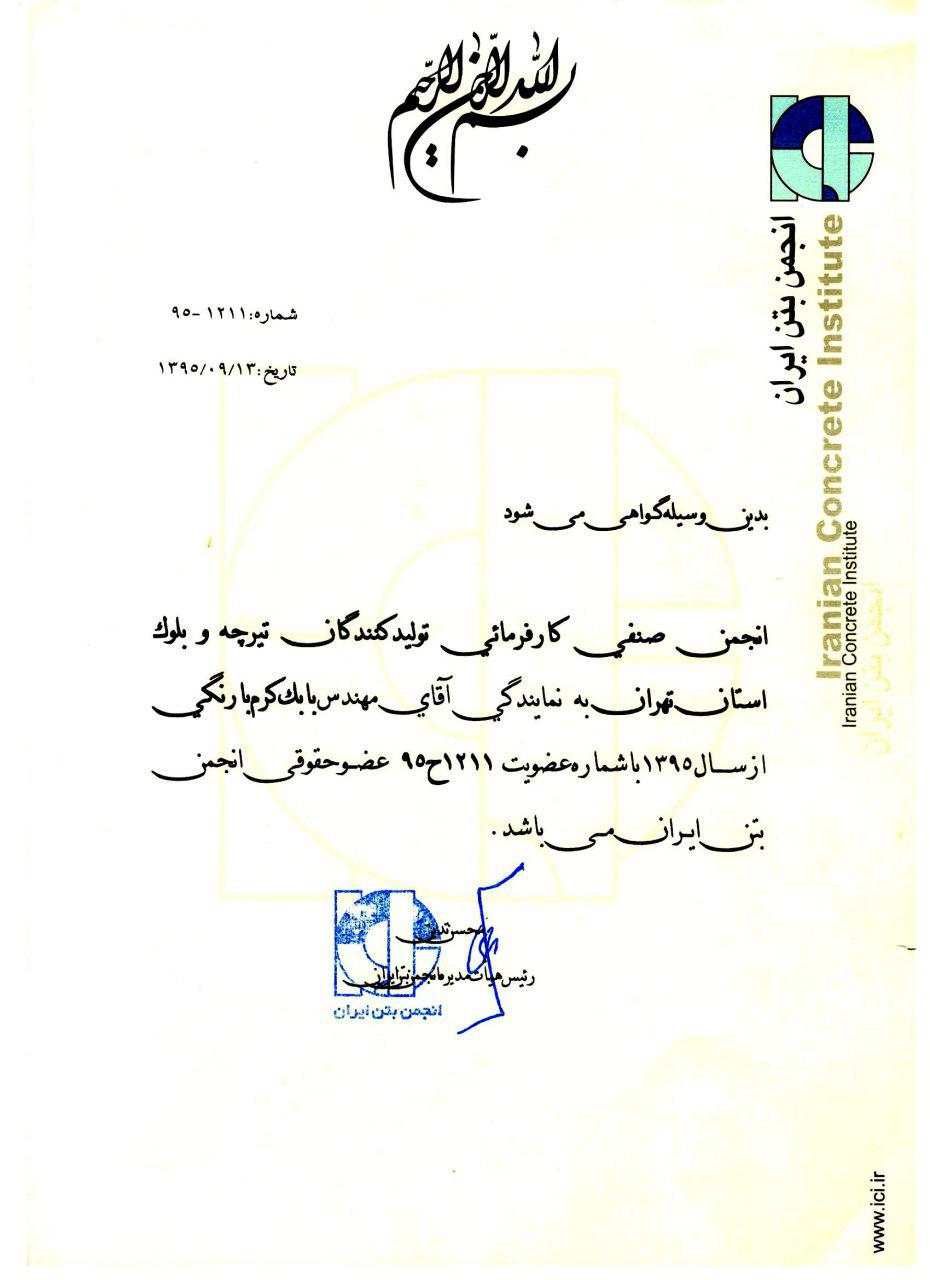 بسم الله الرحمن الرحیم
انجمن بتن ایران
Iranian Concrete Institute
Iranian Concrete Institute
انجمن بتن ایران
شماره:۱۲۱۱ -۹۵
تاریخ:۱۳۹۵/۰۹/۱۳
بدین وسیله گواهی می شود
انجمن صنفي کارفرمائي تولیدکنندگان تیرچه و بلوك
استان تهران به نمایندگي آقاي مهندس بابك کرم بارنگي
از سال ۱۳۹۵ با شماره عضویت ۱۲۱۱ح۹۵ عضو حقوقی انجمن
بتن ایران می باشد.
محسن تدین
رئیس هیات مدیره انجمن بتن ایران
انجمن بتن ایران
www.ici.ir